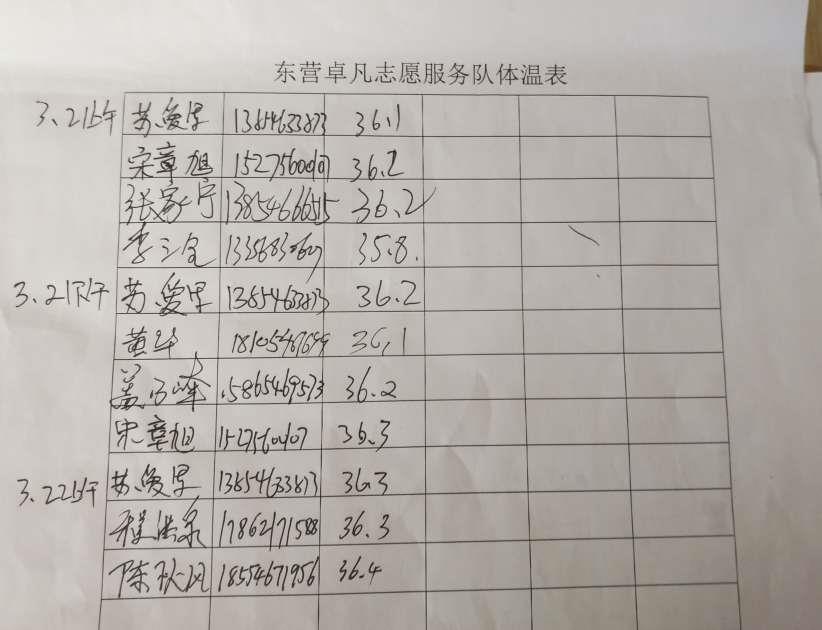 东营卓凡志愿服务队体温表
3.21上午 苏爱军 13854633873 36.1
宋章旭 36.2
张家宁 13854666515 36.2
李三宝 35.8.
3.21下午 苏爱军 13854633873 36.2
黄华 36.1
盖 峰 36.2
宋章旭 36.3
3.22上午 苏爱军 13854633873 36.3
程洪泉 17862171588 36.3
陈秋风 18554671956 36.4